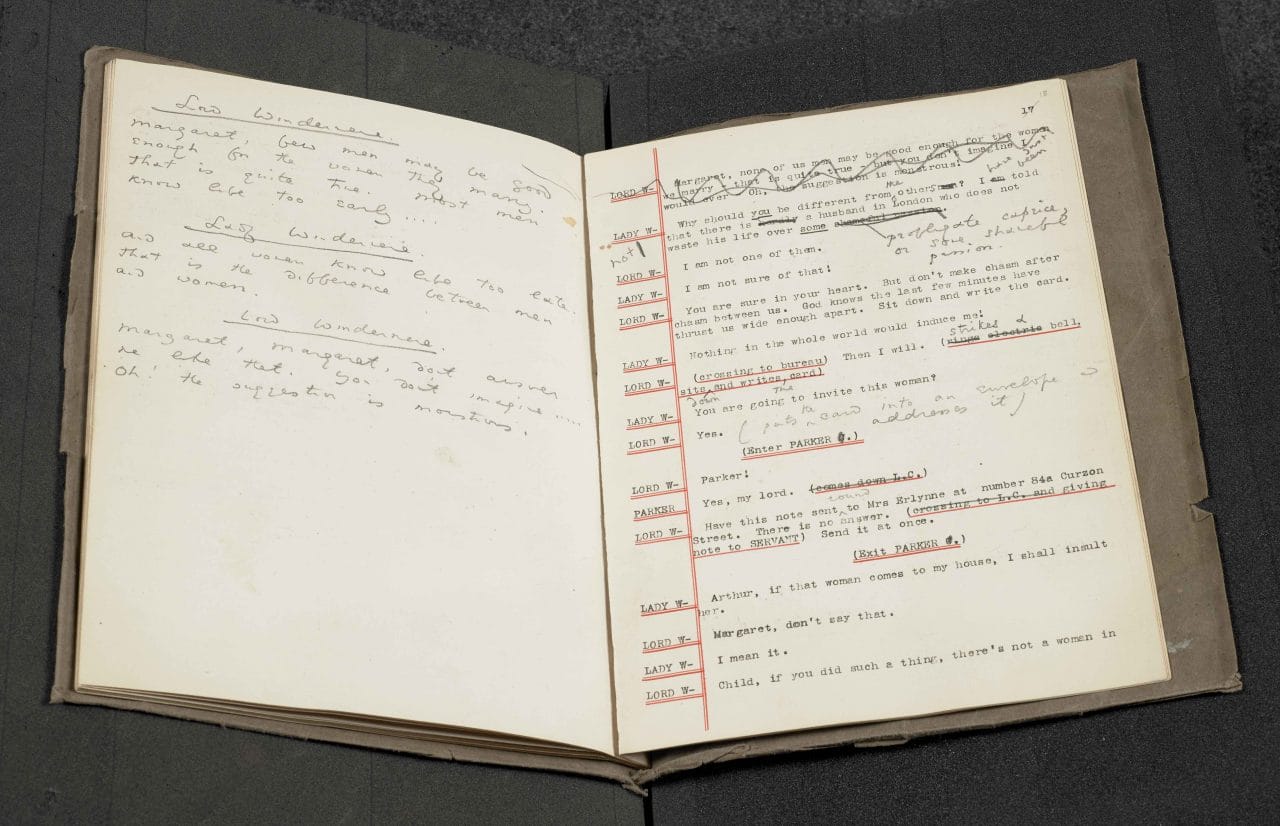 Lord Windermere
Margaret, few men may be good
enough for the women they marry.
that is quite true. most men
know life too early ....
Lady Windermere.
and all women know life too late.
that is the difference between men
and women.
Lord Windermere.
Margaret, Margaret, don't answer
me like that. you don't imagine .....
Oh! the suggestion is monstrous.
18
17
LORD W- Margaret, none of us men may be good enough for the women
we marry - that is quite true - but you don't imagine I
would ever - Oh, the suggestion is monstrous!
have just
been
the
LADY W- Why should you be different from others men? I am told
that there is hardly a husband in London who does not
waste his life over some shameful passion.
profligate caprice,
or some shameful
passion.
not
LORD W- I am not one of them.
LADY W- I am not sure of that!
LORD W- You are sure in your heart. But don't make chasm after
chasm between us. God knows the last few minutes have
thrust us wide enough apart. Sit down and write the card.
LADY W- Nothing in the whole world would induce me!
strikes a
LORD W- (crossing to bureau) Then I will. (rings electric bell,
sits and writes card)
down the
LADY W- You are going to invite this woman?
LORD W- Yes. (puts the card into an envelope &
addresses it)
(Enter PARKER C.)
LORD W- Parker!
PARKER Yes, my lord. (comes down L.C.)
round
LORD W- Have this note sent to Mrs Erlynne at number 84a Curzon
Street. There is no answer. (crossing to L.C. and giving
note to SERVANT) Send it at once.
(Exit PARKER C.)
LADY W- Arthur, if that woman comes to my house, I shall insult
her.
LORD W- Margaret, don't say that.
LADY W- I mean it.
LORD W- Child, if you did such a thing, there's not a woman in